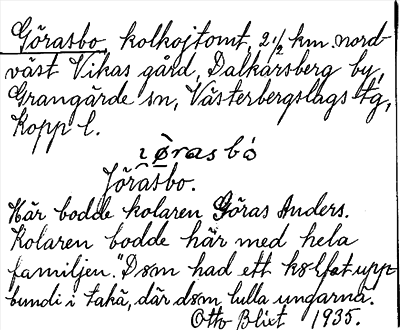 Görasbo, kolkojtomt, 2 1/2 km nord-
väst Vikas gård, Dalkarsberg by,
Grangärde sn, Västerbergslags tg,
Kopp l.
Jörasbo.
Här bodde kolaren Göras Anders.
Kolaren bodde här med hela
familjen. "Dsm had ett upp
bundi i takä, där dsm lulla ungarna."
Otto Blixt 1935.